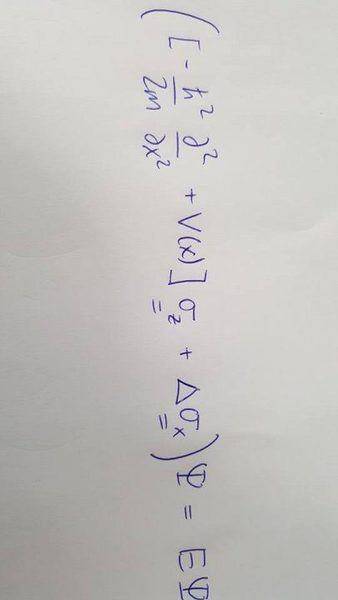 ([-ħ²/2m ∂²/∂x² + V(x)] σ_z + Δσ_x) Ψ = EΨ